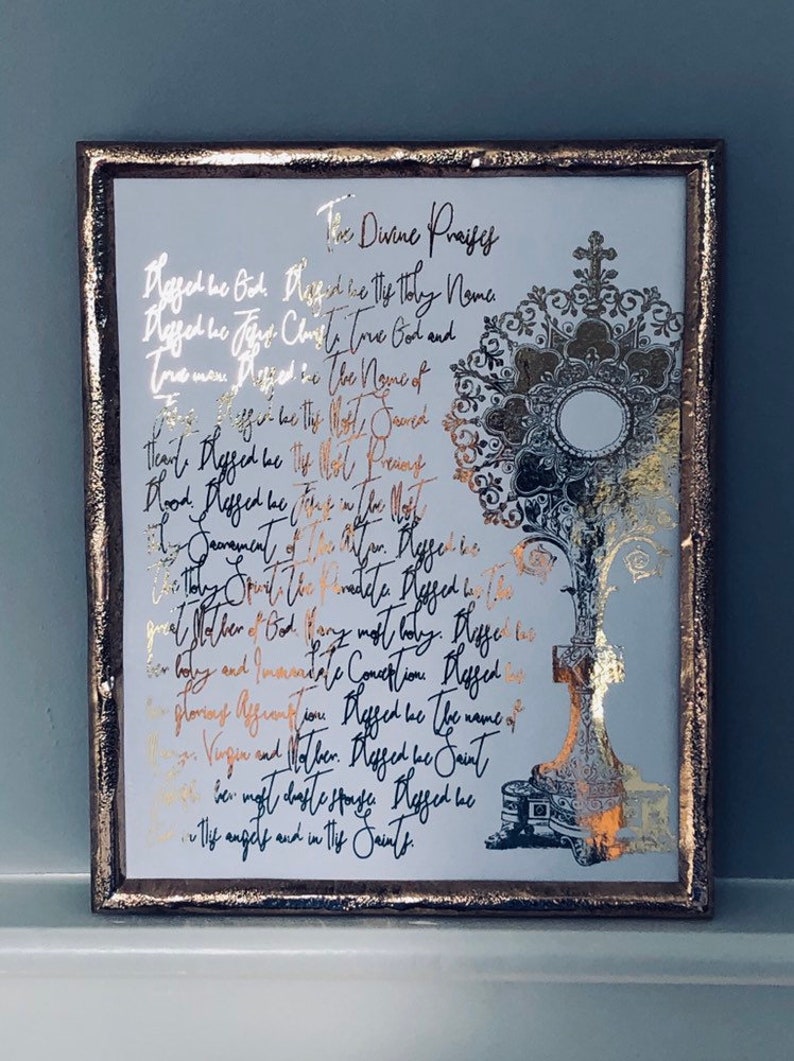 The Divine Praises
Blessed be God. Blessed be His Holy Name.
Blessed be Jesus Christ, True God and
True man. Blessed be The Name of
Jesus. Blessed be His Most Sacred
Heart. Blessed be His Most Precious
Blood. Blessed be Jesus in The Most
Holy Sacrament of The Altar. Blessed be
The Holy Spirit, The Paraclete. Blessed be The
great Mother of God, Mary most holy. Blessed be
her holy and Immaculate Conception. Blessed be
her glorious Assumption. Blessed be The name of
Mary, Virgin and Mother. Blessed be Saint
Joseph, her most chaste spouse. Blessed be
God in His angels and in His Saints.